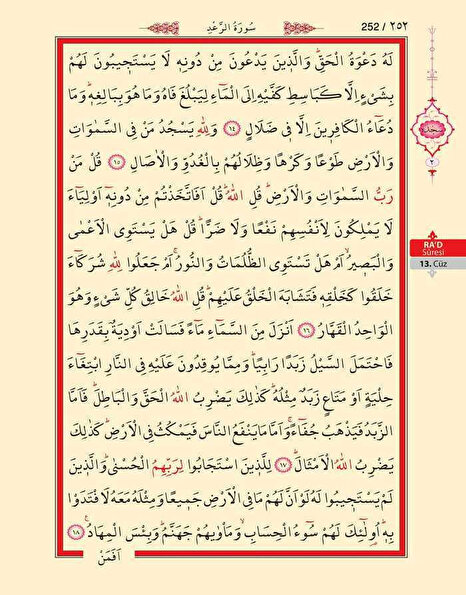 سُورَةُ الرَّعْدِ
252 / ٢٥٢
لَهُ دَعْوَةُ الْحَقِّۜ وَالَّذ۪ينَ يَدْعُونَ مِنْ دُونِه۪ لَا يَسْتَج۪يبُونَ لَهُمْ
بِشَيْءٍ اِلَّا كَبَاسِطِ كَفَّيْهِ اِلَى الْمَٓاءِ لِيَبْلُغَ فَاهُ وَمَا هُوَ بِبَالِغِه۪ۜ وَمَا
دُعَٓاءُ الْكَافِر۪ينَ اِلَّا ف۪ي ضَلَالٍ ﴿١٤﴾ وَلِلّٰهِ يَسْجُدُ مَنْ فِي السَّمٰوَاتِ
وَالْاَرْضِ طَوْعًا وَكَرْهًا وَظِلَالُهُمْ بِالْغُدُوِّ وَالْاٰصَالِ ﴿١٥﴾ قُلْ مَنْ
رَبُّ السَّمٰوَاتِ وَالْاَرْضِۜ قُلِ اللّٰهُۜ قُلْ اَفَاتَّخَذْتُمْ مِنْ دُونِه۪ٓ اَوْلِيَٓاءَ
لَا يَمْلِكُونَ لِاَنْفُسِهِمْ نَفْعًا وَلَا ضَرًّاۜ قُلْ هَلْ يَسْتَوِي الْاَعْمٰى
وَالْبَص۪يرُۙ اَمْ هَلْ تَسْتَوِي الظُّلُمَاتُ وَالنُّورُۚ اَمْ جَعَلُوا لِلّٰهِ شُرَكَٓاءَ
خَلَقُوا كَخَلْقِه۪ فَتَشَابَهَ الْخَلْقُ عَلَيْهِمْۜ قُلِ اللّٰهُ خَالِقُ كُلِّ شَيْءٍ وَهُوَ
الْوَاحِدُ الْقَهَّارُ ﴿١٦﴾ اَنْزَلَ مِنَ السَّمَٓاءِ مَٓاءً فَسَالَتْ اَوْدِيَةٌ بِقَدَرِهَا
فَاحْتَمَلَ السَّيْلُ زَبَدًا رَابِيًاۜ وَمِمَّا يُوقِدُونَ عَلَيْهِ فِي النَّارِ ابْتِغَٓاءَ
حِلْيَةٍ اَوْ مَتَاعٍ زَبَدٌ مِثْلُهُۜ كَذٰلِكَ يَضْرِبُ اللّٰهُ الْحَقَّ وَالْبَاطِلَۜ فَاَمَّا
الزَّبَدُ فَيَذْهَبُ جُفَٓاءًۚ وَاَمَّا مَا يَنْفَعُ النَّاسَ فَيَمْكُثُ فِي الْاَرْضِۜ كَذٰلِكَ
يَضْرِبُ اللّٰهُ الْاَمْثَالَۜ ﴿١٧﴾ لِلَّذ۪ينَ اسْتَجَابُوا لِرَبِّهِمُ الْحُسْنٰىۜ وَالَّذ۪ينَ
لَمْ يَسْتَج۪يبُوا لَهُ لَوْ اَنَّ لَهُمْ مَا فِي الْاَرْضِ جَم۪يعًا وَمِثْلَهُ مَعَهُ لَافْتَدَوْا
بِه۪ۜ اُو۬لٰٓئِكَ لَهُمْ سُٓوءُ الْحِسَابِ وَمَأْوٰيهُمْ جَهَنَّمُۜ وَبِئْسَ الْمِهَادُ۟ ﴿١٨﴾
اَفَمَنْ
سجدة
٢
RA'D
Sûresi
13. Cüz